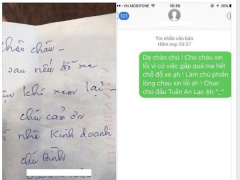 Chân cháu _
sau nếu đỗ xe
khi xem lại _
chú cảm ơn
nhà Kinh doanh
VN MOBIFONE
16:36
101
Tin nhắn văn bản
Hôm nay 09:57
Dạ chào chú ! Cho cháu xin
lỗi vì có việc gấp quá mà hết
chỗ đỗ xe ạh ! Làm chú phiền
lòng cháu xin lỗi ah ! Chúc
chú đầu Tuần An Lạc Ah ^_^